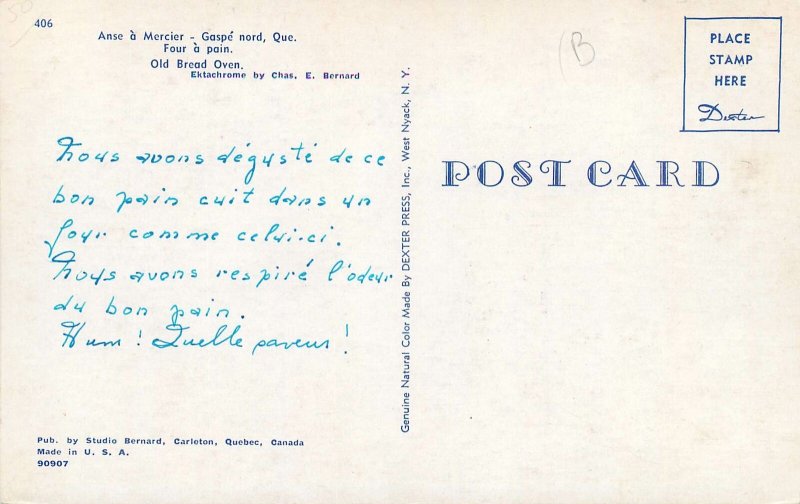 406
Anse à Mercier - Gaspé nord, Que.
Four à pain.
Old Bread Oven.
Ektachrome by Chas. E. Bernard
Nous avons dégusté de ce
bon pain cuit dans un
four comme celui-ci.
Nous avons respiré l'odeur
du bon pain.
Hum! Quelle saveur!
Pub. by Studio Bernard, Carleton, Quebec, Canada
Made in U. S. A.
90907
Genuine Natural Color Made By DEXTER PRESS, Inc., West Nyack, N. Y.
B
PLACE
STAMP
HERE
Dexter
POST CARD